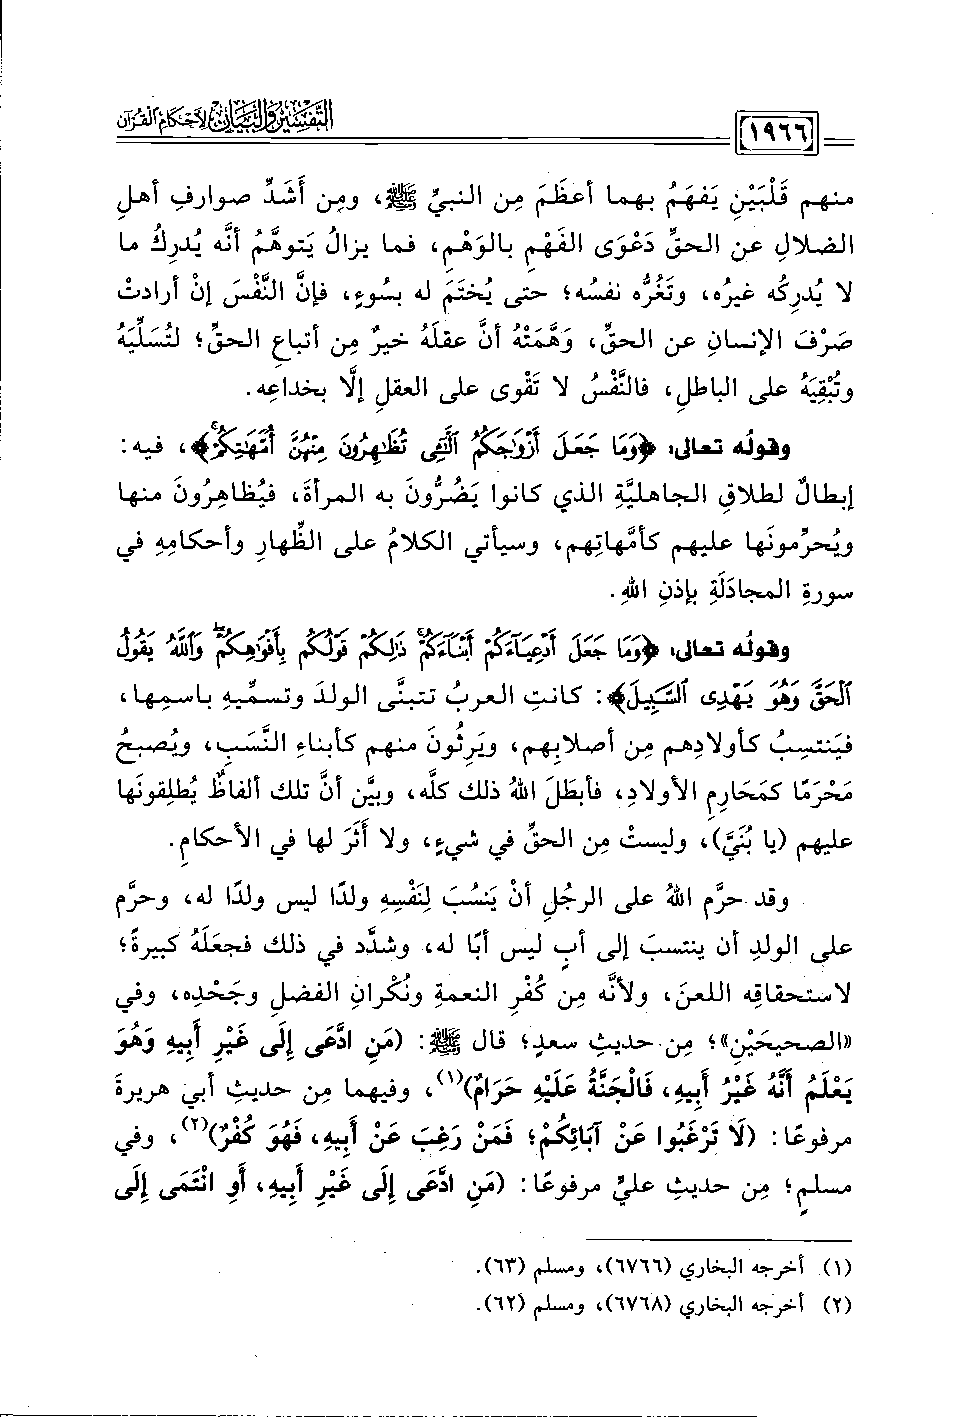 التفسير والبيان لأحكام القرآن
١٩٦٦
منهم قَلْبَيْنِ يَفهَمُ بهما أعظَمَ مِن النبيِّ ﷺ، ومِن أَشَدِّ صوارفِ أهلِ
الضلالِ عن الحقِّ دَعْوَى الفَهْمِ بالوَهْمِ، فما يزالُ يَتوهَّمُ أنَّه يُدرِكُ ما
لا يُدرِكُه غيرُه، وتَغُرُّه نفسُه؛ حتى يُختَمَ له بسُوءٍ، فإنَّ النَّفْسَ إنْ أرادتْ
صَرْفَ الإنسانِ عن الحقِّ، وَهَّمَتْهُ أنَّ عقلَهُ خيرٌ مِن أتباعِ الحقِّ؛ لتُسَلِّيَهُ
وتُبْقِيَهُ على الباطلِ، فالنَّفْسُ لا تَقْوى على العقلِ إلَّا بخداعِه.
وقولُه تعالى: ﴿وَمَا جَعَلَ أَزْوَٰجَكُمُ ٱلَّٰٓـِٔي تُظَٰهِرُونَ مِنْهُنَّ أُمَّهَٰتِكُمْ﴾، فيه:
إبطالٌ لطلاقِ الجاهليَّةِ الذي كانوا يَضُرُّونَ به المرأةَ، فيُظاهِرُونَ منها
ويُحرِّمونَها عليهم كأمَّهاتِهم، وسيأتي الكلامُ على الظِّهارِ وأحكامِهِ في
سورةِ المجادَلَةِ بإذنِ اللهِ.
وقولُه تعالى: ﴿وَمَا جَعَلَ أَدْعِيَآءَكُمْ أَبْنَآءَكُمْ ذَٰلِكُمْ قَوْلُكُم بِأَفْوَٰهِكُمْ ۖ وَٱللَّهُ يَقُولُ
ٱلْحَقَّ وَهُوَ يَهْدِى ٱلسَّبِيلَ﴾: كانتِ العربُ تتبنَّى الولدَ وتسمِّيهِ باسمِها،
فيَنتسِبُ كأولادِهم مِن أصلابِهم، ويَرِثُونَ منهم كأبناءِ النَّسَبِ، ويُصبحُ
مَحْرَمًا كمَحَارِمِ الأولادِ، فأبطَلَ اللهُ ذلك كلَّه، وبيَّن أنَّ تلك ألفاظٌ يُطلِقونَها
عليهم (يا بُنَيَّ)، وليستْ مِن الحقِّ في شيءٍ، ولا أَثَرَ لها في الأحكامِ.
وقد حرَّم اللهُ على الرجُلِ أنْ يَنسُبَ لِنَفْسِهِ ولدًا ليس ولدًا له، وحرَّم
على الولدِ أن ينتسبَ إلى أبٍ ليس أبًا له، وشدَّد في ذلك فجعَلَهُ كبيرةً؛
لاستحقاقِه اللعنَ، ولأنَّه مِن كُفْرِ النعمةِ ونُكْرانِ الفضلِ وجَحْدِه، وفي
«الصحيحَيْنِ»؛ مِن حديثِ سعدٍ؛ قال ﷺ: (مَنِ ادَّعَى إِلَى غَيْرِ أَبِيهِ وَهُوَ
يَعْلَمُ أَنَّهُ غَيْرُ أَبِيهِ، فَالْجَنَّةُ عَلَيْهِ حَرَامٌ)(١)، وفيهما مِن حديثِ أبي هريرةَ
مرفوعًا: (لَا تَرْغَبُوا عَنْ آبَائِكُمْ؛ فَمَنْ رَغِبَ عَنْ أَبِيهِ، فَهُوَ كُفْرٌ)(٢)، وفي
مسلمٍ؛ مِن حديثِ عليٍّ مرفوعًا: (مَنِ ادَّعَى إِلَى غَيْرِ أَبِيهِ، أَوِ انْتَمَى إِلَى
(١) أخرجه البخاري (٦٧٦٦)، ومسلم (٦٣).
(٢) أخرجه البخاري (٦٧٦٨)، ومسلم (٦٢).